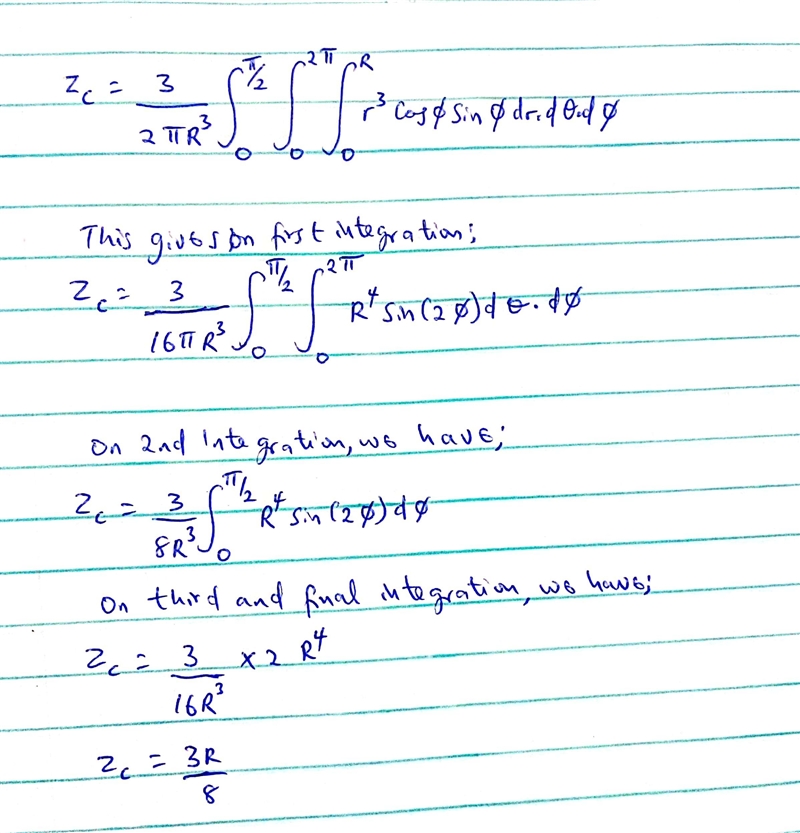 Z_c = 3/(2πR³) ∫₀^(π/2) ∫₀^(2π) ∫₀^R r³ Cosϕ Sinϕ dr.dθ.dϕ
This gives on first integration;
Z_c = 3/(16πR³) ∫₀^(π/2) ∫₀^(2π) R⁴ Sin(2ϕ)dθ.dϕ
On 2nd Integration, we have;
Z_c = 3/(8R³) ∫₀^(π/2) R⁴ Sin(2ϕ)dϕ
On third and final integration, we have;
Z_c = 3/(16R³) × 2 R⁴
Z_c = 3R/8